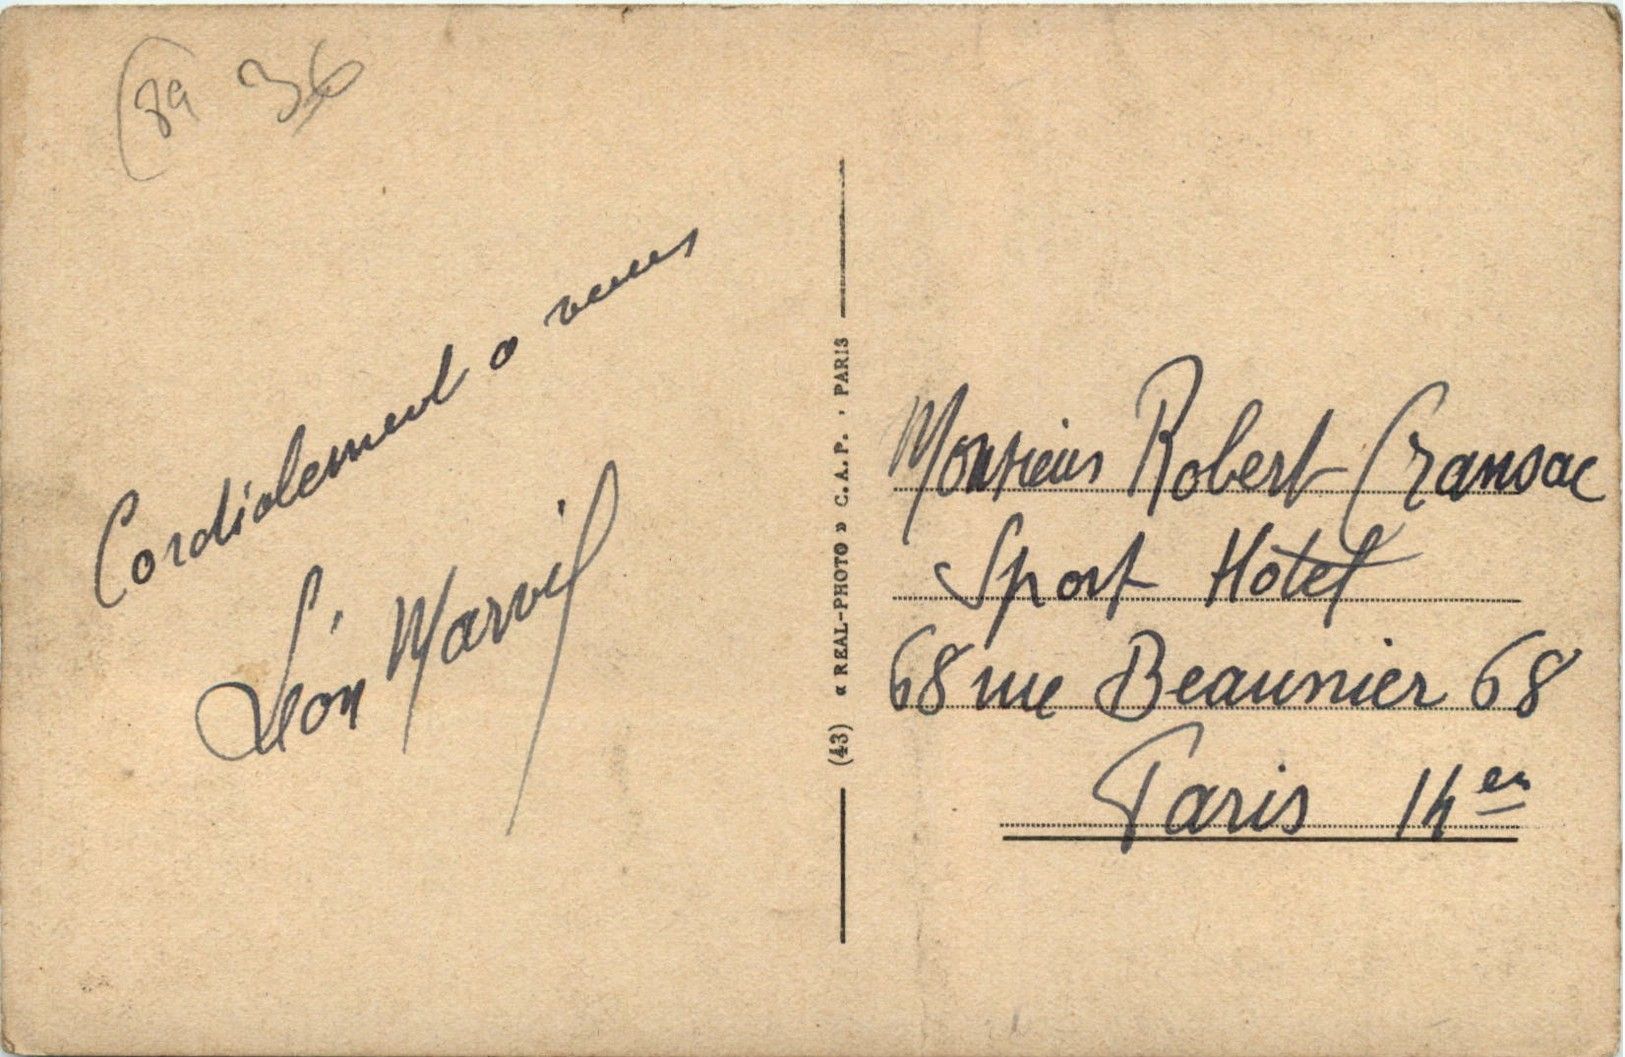 89 36
Cordialement a vous
Léon Marvil
(43) « REAL-PHOTO » C. A. P. · PARIS
Monsieur Robert Cransac
Sport Hôtel
68 rue Beaunier 68
Paris 14en